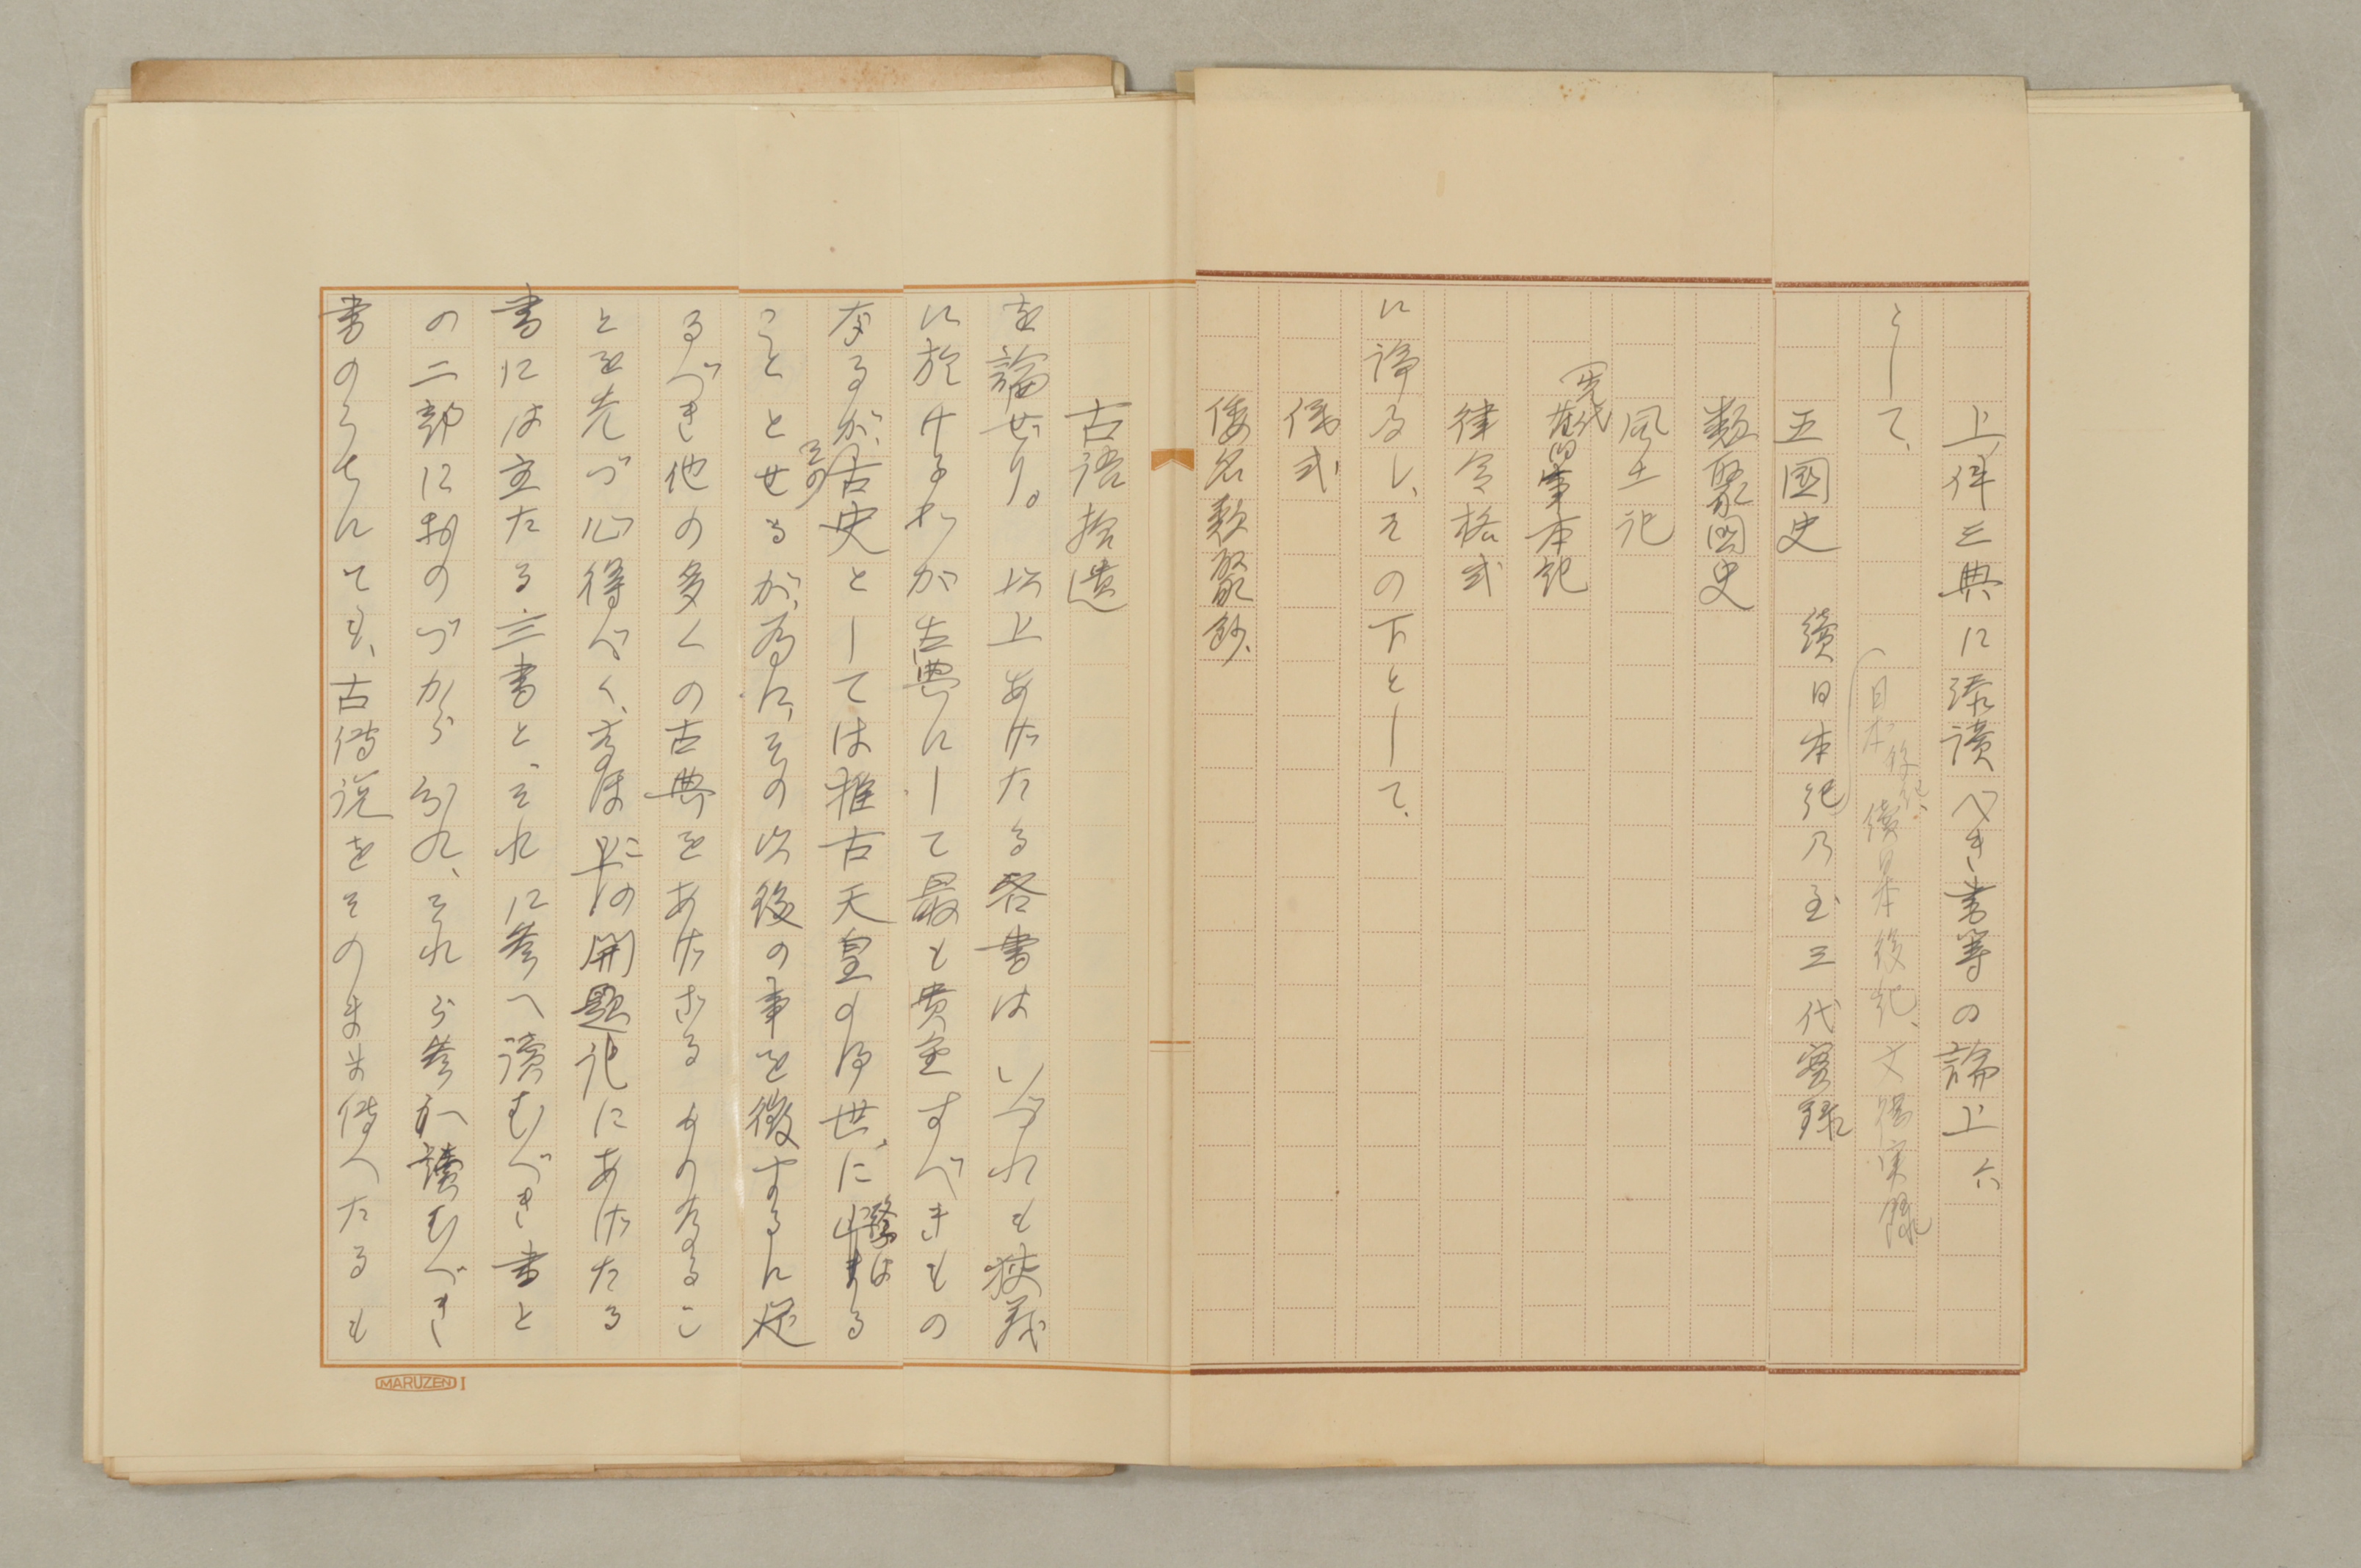 上件三典に添讀べき書等の論上六
として、
(日本後紀、續日本後紀、文德実録
五國史 續日本紀乃至三代實録)
類聚國史
風土記
舊事本紀
(先代
律令格式
に諍るし、その下として、
儀式
倭名類聚鈔、
古語拾遺
を論ぜり。以上あげたる各書はいづれも狭義
に於けるわが古典にして最も貴重すべきもの
なるが、古史としては推古天皇の御世、に止まる
その
繋は
ことゝせるが、為に、その以後の事を徴するに足
るべき他の多くの古典をあげざるものなるこ
とを先づ心得べく、なほこの開題記にあげたる
書には主たる三書と、それに參へ讀むべき書と
の二部におのづから分れ、それら參へ讀むべき
書のうちにても、古傳説をそのまま傳へたるも
MARUZEN I